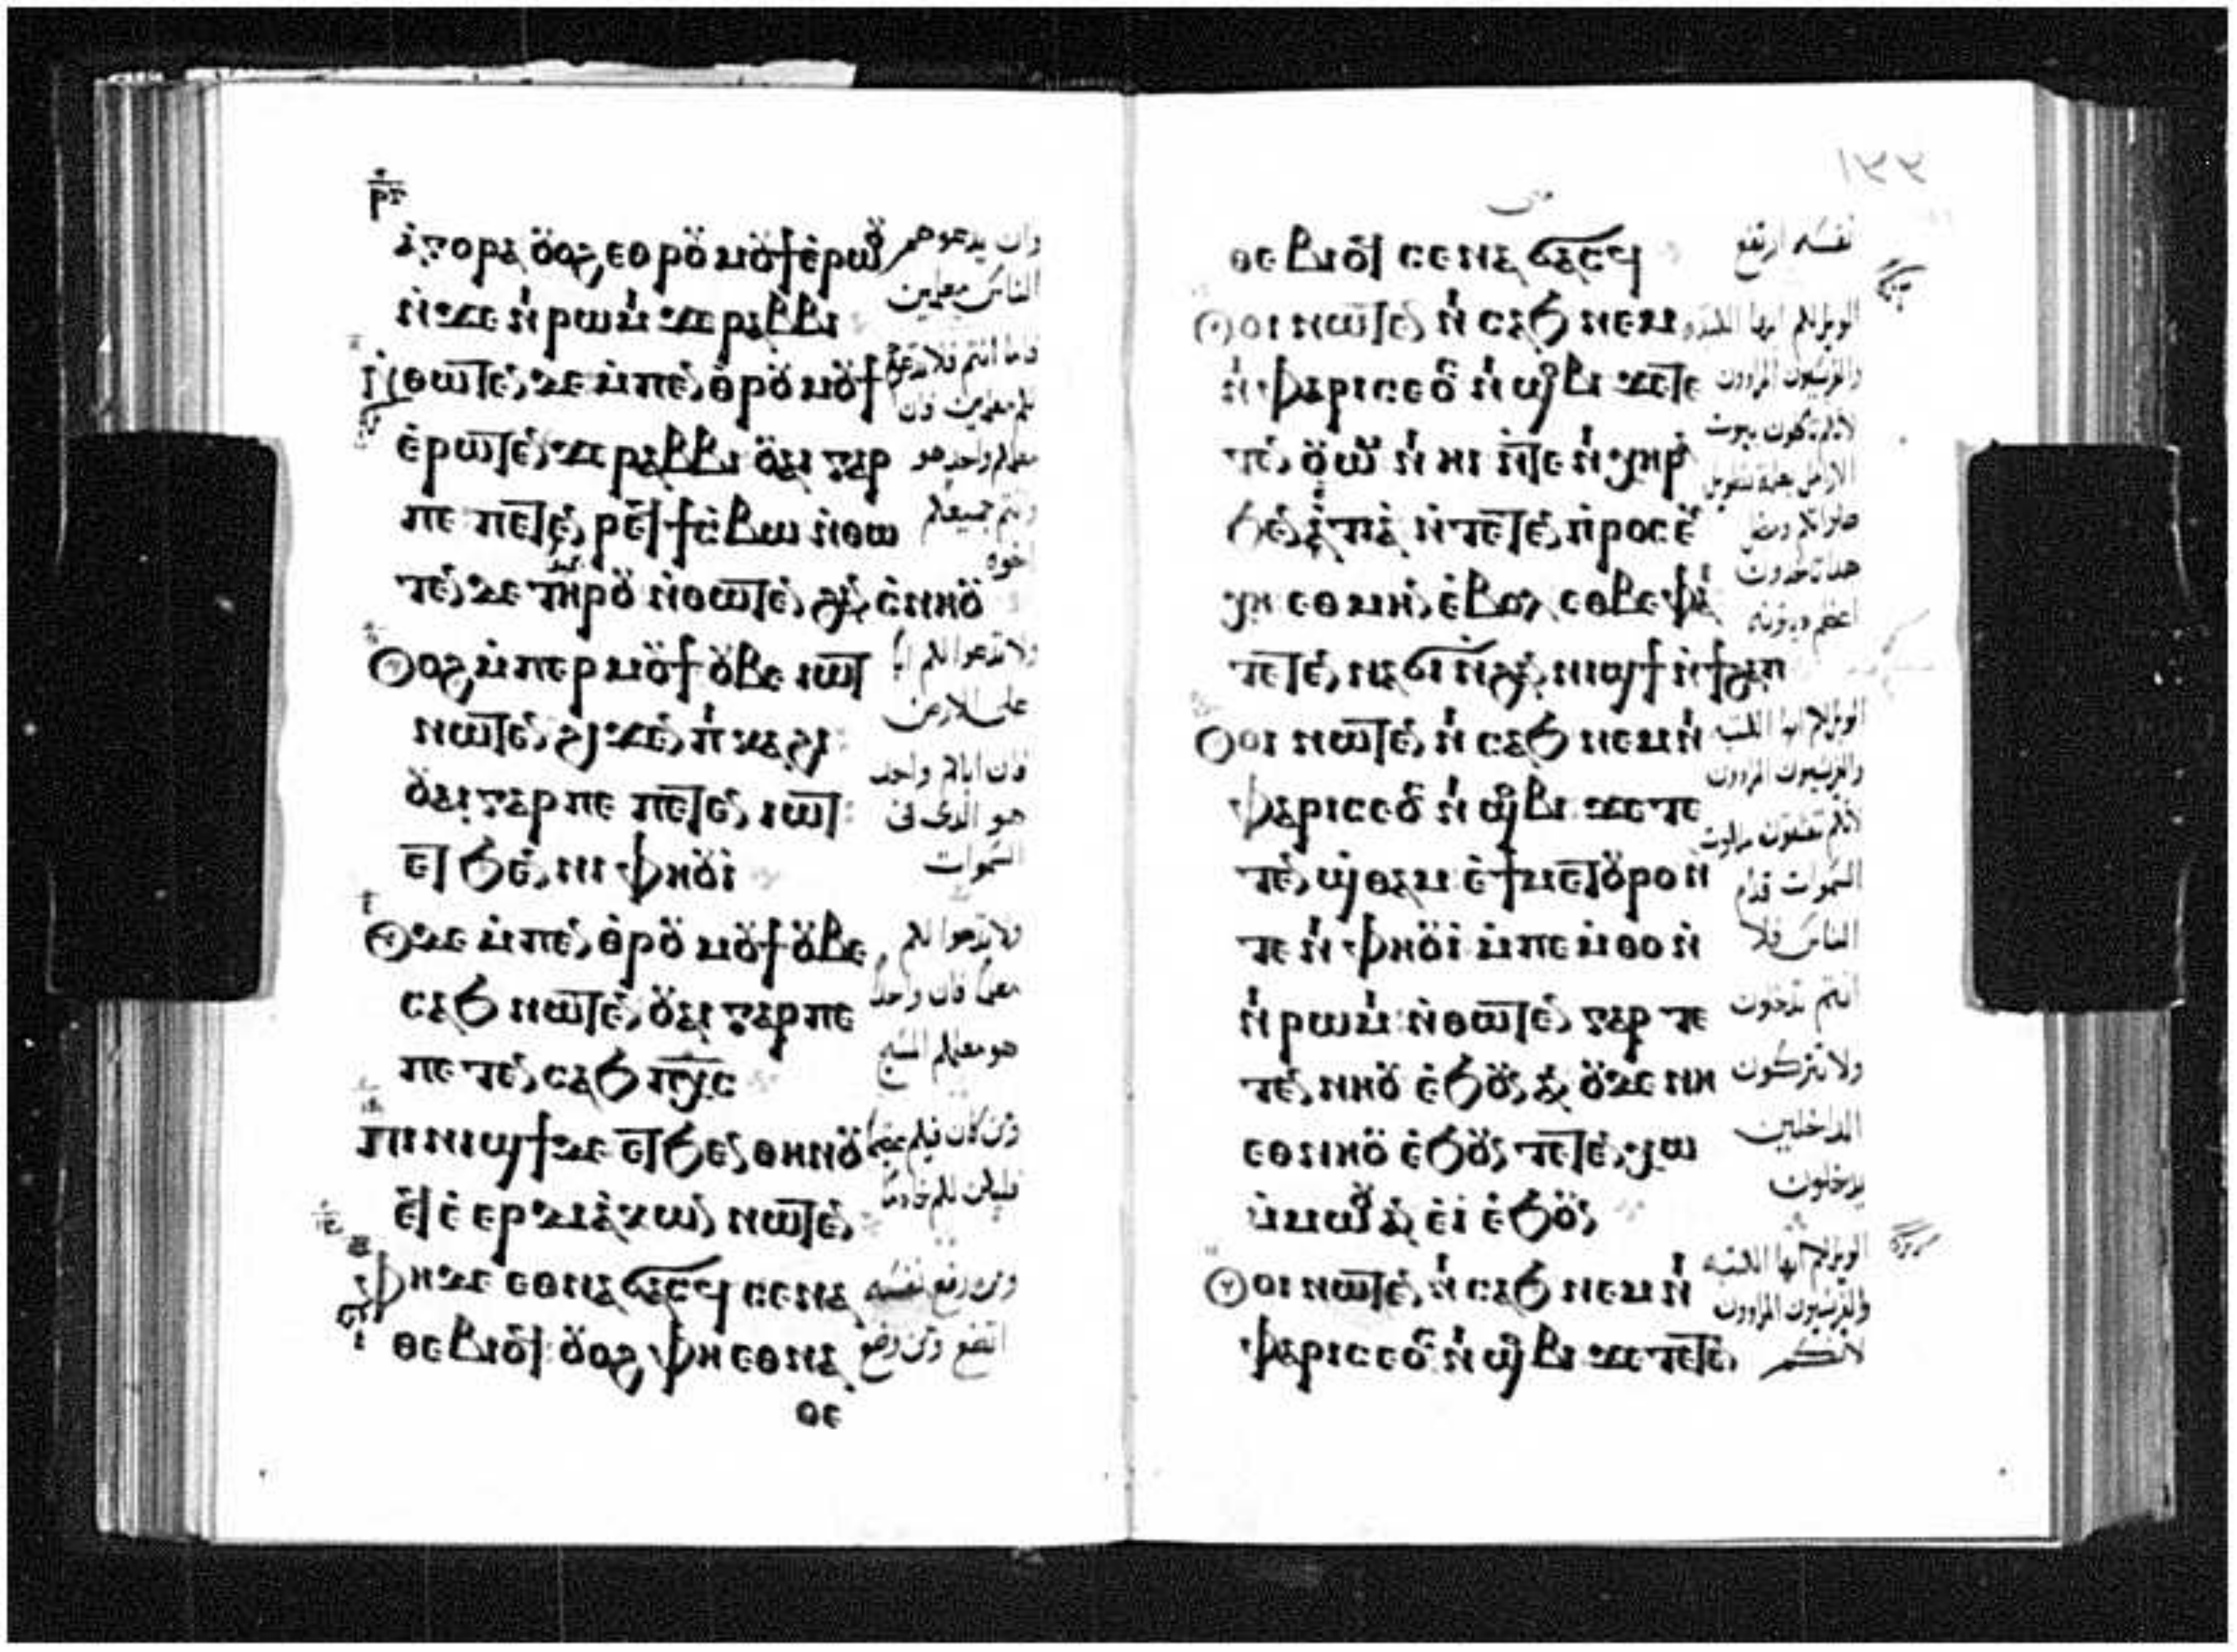 ⲁⲅⲟⲣⲁ ⲟⲩⲟϩ ⲉⲑⲣⲟⲩⲙⲟⲩϯ ⲉⲣⲱⲟⲩ
ⲛϫⲉ ⲛⲓⲣⲱⲙⲓ ϫⲉ ⲣⲁⲃⲃⲓ
ⲛⲑⲱⲧⲉⲛ ⲇⲉ ⲙⲡⲉⲛⲑⲣⲟⲩⲙⲟⲩϯ
ⲉⲣⲱⲧⲉⲛ ϫⲉ ⲣⲁⲃⲃⲓ ⲟⲩⲁⲓ ⲅⲁⲣ
ⲡⲉ ⲡⲉⲧⲉⲛⲣⲉϥϯⲥⲃⲱ ⲛⲑⲱ
ⲧⲉⲛ ⲇⲉ ⲧⲏⲣⲟⲩ ⲛⲑⲱⲧⲉⲛ ϩⲁⲛⲥⲛⲏⲟⲩ
ⲟⲩⲟϩ ⲙⲡⲉⲣⲙⲟⲩϯ ⲟⲩⲃⲉ ⲓⲱⲧ
ⲛⲱⲧⲉⲛ ϩⲓϫⲉⲛ ⲡⲓⲕⲁϩⲓ
ⲟⲩⲁⲓ ⲅⲁⲣ ⲡⲉ ⲡⲉⲧⲉⲛⲓⲱⲧ
ⲉⲧϧⲉⲛ ⲛⲓⲫⲏⲟⲩⲓ
ⲟⲩⲇⲉ ⲙⲡⲉⲛⲑⲣⲟⲩⲙⲟⲩϯ ⲟⲩⲃⲉ
ⲥⲁϧ ⲛⲱⲧⲉⲛ ⲟⲩⲁⲓ ⲅⲁⲣ ⲡⲉ
ⲡⲉⲧⲉⲛⲥⲁϧ ⲡⲭⲥ
ⲡⲓⲛⲓϣϯ ⲇⲉ ⲉⲧϧⲉⲛ ⲑⲏⲛⲟⲩ
ⲉϥⲉⲉⲣⲇⲓⲁⲕⲱⲛ ⲛⲱⲧⲉⲛ
ⲫⲏ ⲇⲉ ⲉⲑⲛⲁϭⲁⲥϥ ⲥⲉⲛⲁ
ⲑⲉⲃⲓⲟϥ ⲟⲩⲟϩ ⲫⲏ ⲉⲑⲛⲁ
ⲑⲉ
وان يدعوهم
الناس معلمين
فاما انتم فلا تدعو
لكم معلمين فان
معلمكم واحد هو
وانتم جميعكم
اخوه
ولا تدعوا لكم ابا
على الارض
فان اباكم واحد
هو الدى فى
السموات
ولا تدعوا لكم
معلما فان واحدا
هو معلمكم المسيح
ومن كان فيكم عظيما
فليكن لكم خادما
ومن رفع نفسه
اتضع ومن وضع
١٣٣
متى
ⲑⲉⲃⲓⲟϥ ⲥⲉⲛⲁϭⲁⲥϥ
ⲟⲩⲟⲓ ⲛⲱⲧⲉⲛ ⲛⲓⲥⲁϧ ⲛⲉⲙ
ⲛⲓⲫⲁⲣⲓⲥⲉⲟⲥ ⲛϣⲟⲃⲓ ϫⲉ ⲧⲉ
ⲧⲉⲛⲟⲩⲱⲙ ⲛⲛⲓⲏⲓ ⲛⲧⲉ ⲛⲓⲭⲏⲣⲁ
ϧⲉⲛ ⲁⲡⲁ ⲛⲧⲉⲧⲉⲛⲡⲣⲟⲥⲉⲩ
ⲭⲏ ⲥⲑⲙⲏⲛ ⲉⲃⲟⲗ ⲥⲑⲃⲉ ⲫⲁⲓ
ⲧⲉⲧⲉⲛⲛⲁϭⲓ ⲛϩⲁⲛⲛⲓϣϯ ⲛϯϩⲁⲡ
ⲟⲩⲟⲓ ⲛⲱⲧⲉⲛ ⲛⲓⲥⲁϧ ⲛⲉⲙ ⲛⲓ
ⲫⲁⲣⲓⲥⲉⲟⲥ ⲛϣⲟⲃⲓ ϫⲉ ⲧⲉ
ⲧⲉⲛϣⲑⲁⲙ ⲉϯⲙⲉⲧⲟⲩⲣⲟ ⲛ
ⲧⲉ ⲛⲓⲫⲏⲟⲩⲓ ⲙⲡⲉⲙⲑⲟ ⲛ
ⲛⲓⲣⲱⲙⲓ ⲛⲑⲱⲧⲉⲛ ⲅⲁⲣ ⲧⲉ
ⲧⲉⲛⲛⲏⲟⲩ ⲉϧⲟⲩⲛ ⲁⲛ ⲟⲩⲇⲉ ⲛⲏ
ⲉⲑⲛⲏⲟⲩ ⲉϧⲟⲩⲛ ⲧⲉⲧⲉⲛⲭⲱ
ⲙⲙⲱⲟⲩ ⲁⲛ ⲉⲓ ⲉϧⲟⲩⲛ
ⲟⲩⲟⲓ ⲛⲱⲧⲉⲛ ⲛⲓⲥⲁϧ ⲛⲉⲙ ⲛⲓ
ⲫⲁⲣⲓⲥⲉⲟⲥ ⲛϣⲟⲃⲓ ϫⲉ ⲧⲉⲧⲉⲛ
نفسه ارتفع
الويل لكم ايها الكتبه
والفريسيون المراوون
لانكم تاكلون بيوت
الارامل بعلة تطويل
صلواتكم ومن
هدا تاخدون
اعظم دينونه
الويل لكم ايها الكتبه
والفريسيون المراوون
لانكم تغلقون ملكوت
السموات قدام
الناس فلا
انتم تدخلون
ولا تتركون
الداخلين
يدخلون
الويل لكم ايها الكتبه
والفريسيون المراوون
لانكم